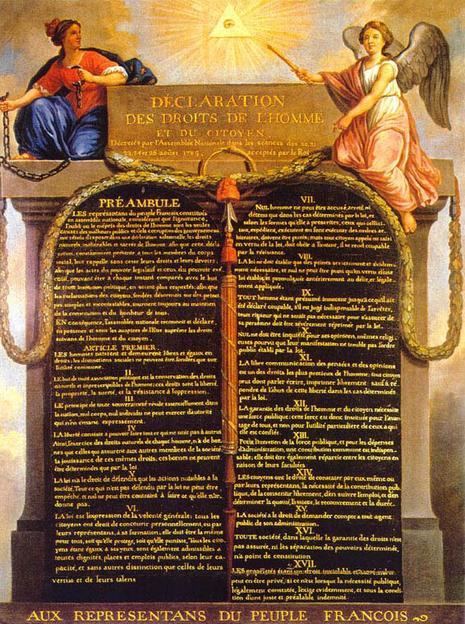 DÉCLARATION
DES DROITS DE L'HOMME
ET DU CITOYEN
Décrétés par l'Assemblée Nationale dans les séances des 20, 21
23, 24 et 26 août 1789, acceptés par le Roi
PRÉAMBULE
LES représentans du peuple François, constitués
en assemblée nationale, considérant que l'ignorance,
l'oubli ou le mépris des droits de l'homme sont les seules
causes des malheurs publics et de la corruption des gouvernemens
ont résolu d'exposer dans une déclaration solemnelle, les droits
naturels, inaliénables et sacrés de l'homme; afin que cette décla-
ration, constamment présente à tous les membres du corps
social, leur rappelle sans cesse leurs droits et leurs devoirs;
afin que les actes du pouvoir législatif et ceux du pouvoir exé-
cutif, pouvant être à chaque instant comparés avec le but
de toute institution politique, en soient plus respectés; afin que
les réclamations des citoyens, fondées désormais sur des princi-
pes simples et incontestables, tournent toujours au maintien
de la constitution et du bonheur de tous.
EN conséquence, l'assemblée nationale reconnoît et déclare
en présence et sous les auspices de l'Être suprême les droits
suivans de l'homme et du citoyen.
ARTICLE PREMIER.
LES hommes naissent et demeurent libres et égaux en
droits; les distinctions sociales ne peuvent être fondées que sur
l'utilité commune.
II.
LE but de toute association politique est la conservation des droits
naturels et imprescriptibles de l'homme; ces droits sont la liberté,
la propriété, la sureté, et la résistance à l'oppression.
III.
LE principe de toute souveraineté réside essentiellement dans
la nation, nul corps, nul individu ne peut exercer d'autorité
qui n'en émane expressément.
IV.
LA liberté consiste à pouvoir faire tout ce qui ne nuit pas à autrui
Ainsi, l'exercice des droits naturels de chaque homme, n'a de bor-
nes que celles qui assurent aux autres membres de la société
la jouissance de ces mêmes droits; ces bornes ne peuvent
être déterminées que par la loi
V.
LA loi n'a le droit de défendre que les actions nuisibles à la
société. Tout ce qui n'est pas défendu par la loi ne peut être
empêché, et nul ne peut être contraint à faire ce qu'elle n'or-
donne pas.
VI.
LA loi est l'expression de la volonté générale; tous les
citoyens ont droit de concourir personnellement, ou par
leurs représentans, à sa formation; elle doit être la même
pour tous, soit qu'elle protege, soit qu'elle punisse. Tous les cito-
yens étant égaux à ses yeux, sont également admissibles à
toutes dignités, places et emplois publics, selon leur ca-
pacité, et sans autres distinction que celles de leurs
vertus et de leurs talens
VII.
NUL homme ne peut être accusé, arrêté, ni
détenu que dans les cas déterminés par la loi, et
selon les formes qu'elle a prescrites, ceux qui sollici-
tent, expédient, exécutent ou font exécuter des ordres ar-
bitraires, doivent être punis; mais tout citoyen appelé ou saisi
en vertu de la loi, doit obéir à l'instant, il se rend coupable
par la résistance.
VIII.
LA loi ne doit établir que des peines strictement et évidemment
nécessaires, et nul ne peut être puni qu'en vertu d'une
loi établie et promulguée antérieurement au délit, et légale-
ment appliquée.
IX.
TOUT homme étant présumé innocent jusqu'à ce qu'il ait
été déclaré coupable, s'il est jugé indispensable de l'arrêter,
toute rigueur qui ne serait pas nécessaire pour s'assurer de
sa personne doit être sévèrement réprimée par la loi.
X.
NUL ne doit être inquiété pour ses opinions, mêmes religi-
euses pourvu que leur manifestation ne trouble pas l'ordre
public établi par la loi.
XI.
LA libre communication des pensées et des opinions
est un des droits les plus précieux de l'homme; tout citoyen
peut donc parler, écrire, imprimer librement; sauf à ré-
pondre de l'abus de cette liberté dans les cas déterminés
par la loi.
XII.
LA garantie des droits de l'homme et du citoyen nécessite
une force publique; cette force est donc instituée pour l'avan-
tage de tous, et non pour l'utilité particuliere de ceux à qui
elle est confiée.
XIII.
Pour l'entretien de la force publique, et pour les dépenses
d'administration, une contribution commune est indispen-
sable; elle doit être également répartie entre les citoyens en
raison de leurs facultées
XIV.
LES citoyens ont le droit de constater par eux mêmes ou
par leurs représentans, la nécessité de la contribution pub-
lique, de la consentir librement, d'en suivre l'emploi, et d'en
déterminer la quotité, l'assiette, le recouvrement et la durée.
XV.
LA société a le droit de demander compte à tout agent
public de son administration.
XVI.
TOUTE société, dans laquelle la garantie des droits n'est
pas assurée, ni la séparation des pouvoirs déterminée,
n'a point de constitution
XVII.
LES propriétés étant un droit inviolable et sacré, nul ne
peut en être privé, si ce n'est lorsque la nécessité publique,
légalement constatée, l'exige évidemment, et sous la condi-
tion d'une juste et préalable indemnité.
AUX REPRESENTANS DU PEUPLE FRANCOIS